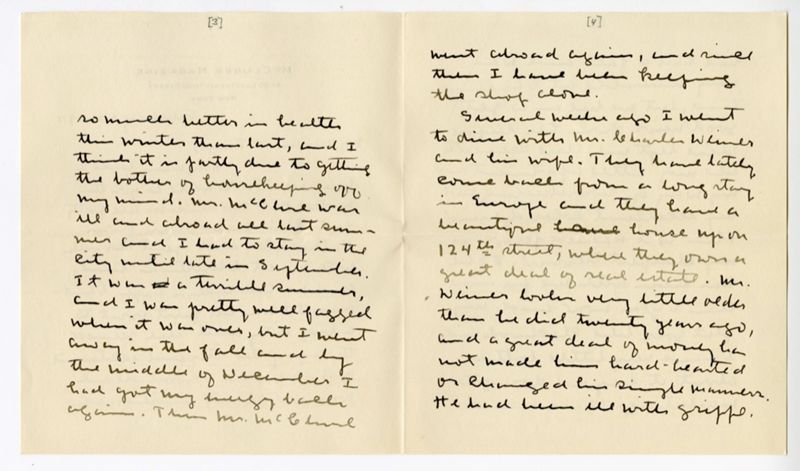 [3]
so much better in health
this winter than last, and I
think it is partly due to getting
the bother of housekeeping off
my mind. Mr. McClure was
ill and abroad all last sum-
mer and I had to stay in the
city until late in September.
It was a terrible summer,
and I was pretty well fagged
when it was over, but I went
away in the fall and by
the middle of December I
had got my energy back
again. Then Mr. McClure
[4]
went abroad again, and since
then I have been keeping
the shop alone.
Several weeks ago I went
to dine with Mr. Charles Weiner
and his wife. They have lately
come back from a long stay
in Europe and they have a
beautiful house up on
124th street, where they own a
great deal of real estate. Mr.
Weiner looks very little older
than he did twenty years ago,
and a great deal of money has
not made him hard-hearted
or changed his simple manners.
He had been ill with grippe.